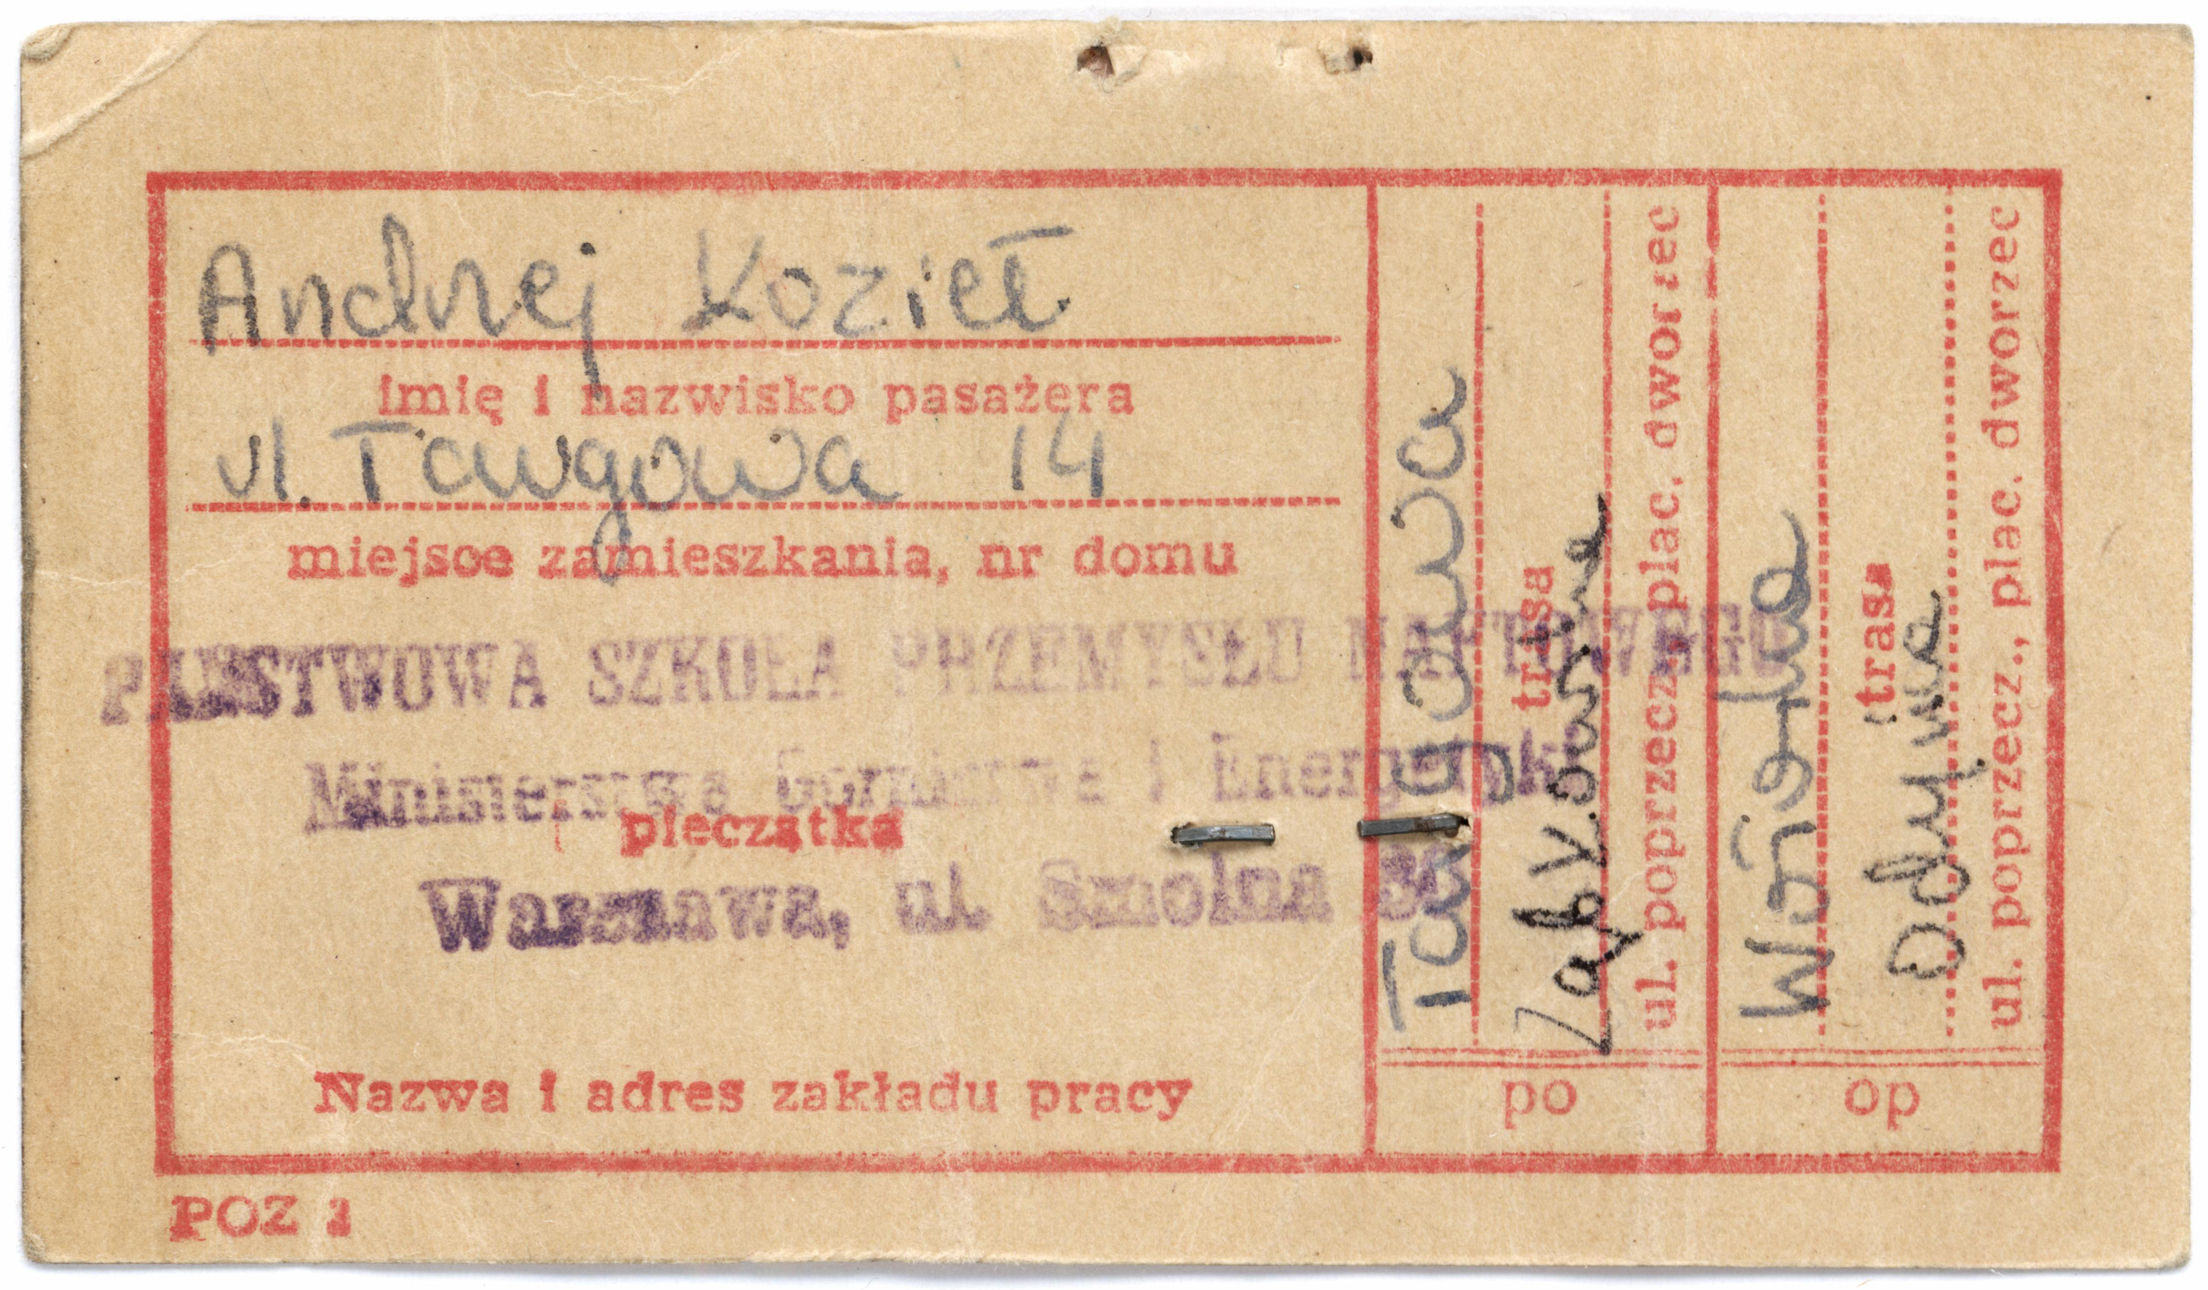 Andrzej Kozieł
imię i nazwisko pasażera
ul. Targowa 14
miejsce zamieszkania, nr domu
PAŃSTWOWA SZKOŁA PRZEMYSŁU NAFTOWEGO
Ministerstwa Górnictwa i Energetyki
pieczątka
Warszawa, ul. Smolna
Nazwa i adres zakładu pracy
POZ 1
Targowa
trasa
Ząbkowska
ul. poprzecz, plac, dworzec
po
trasa
Odyńca
ul. poprzecz., plac, dworzec
op